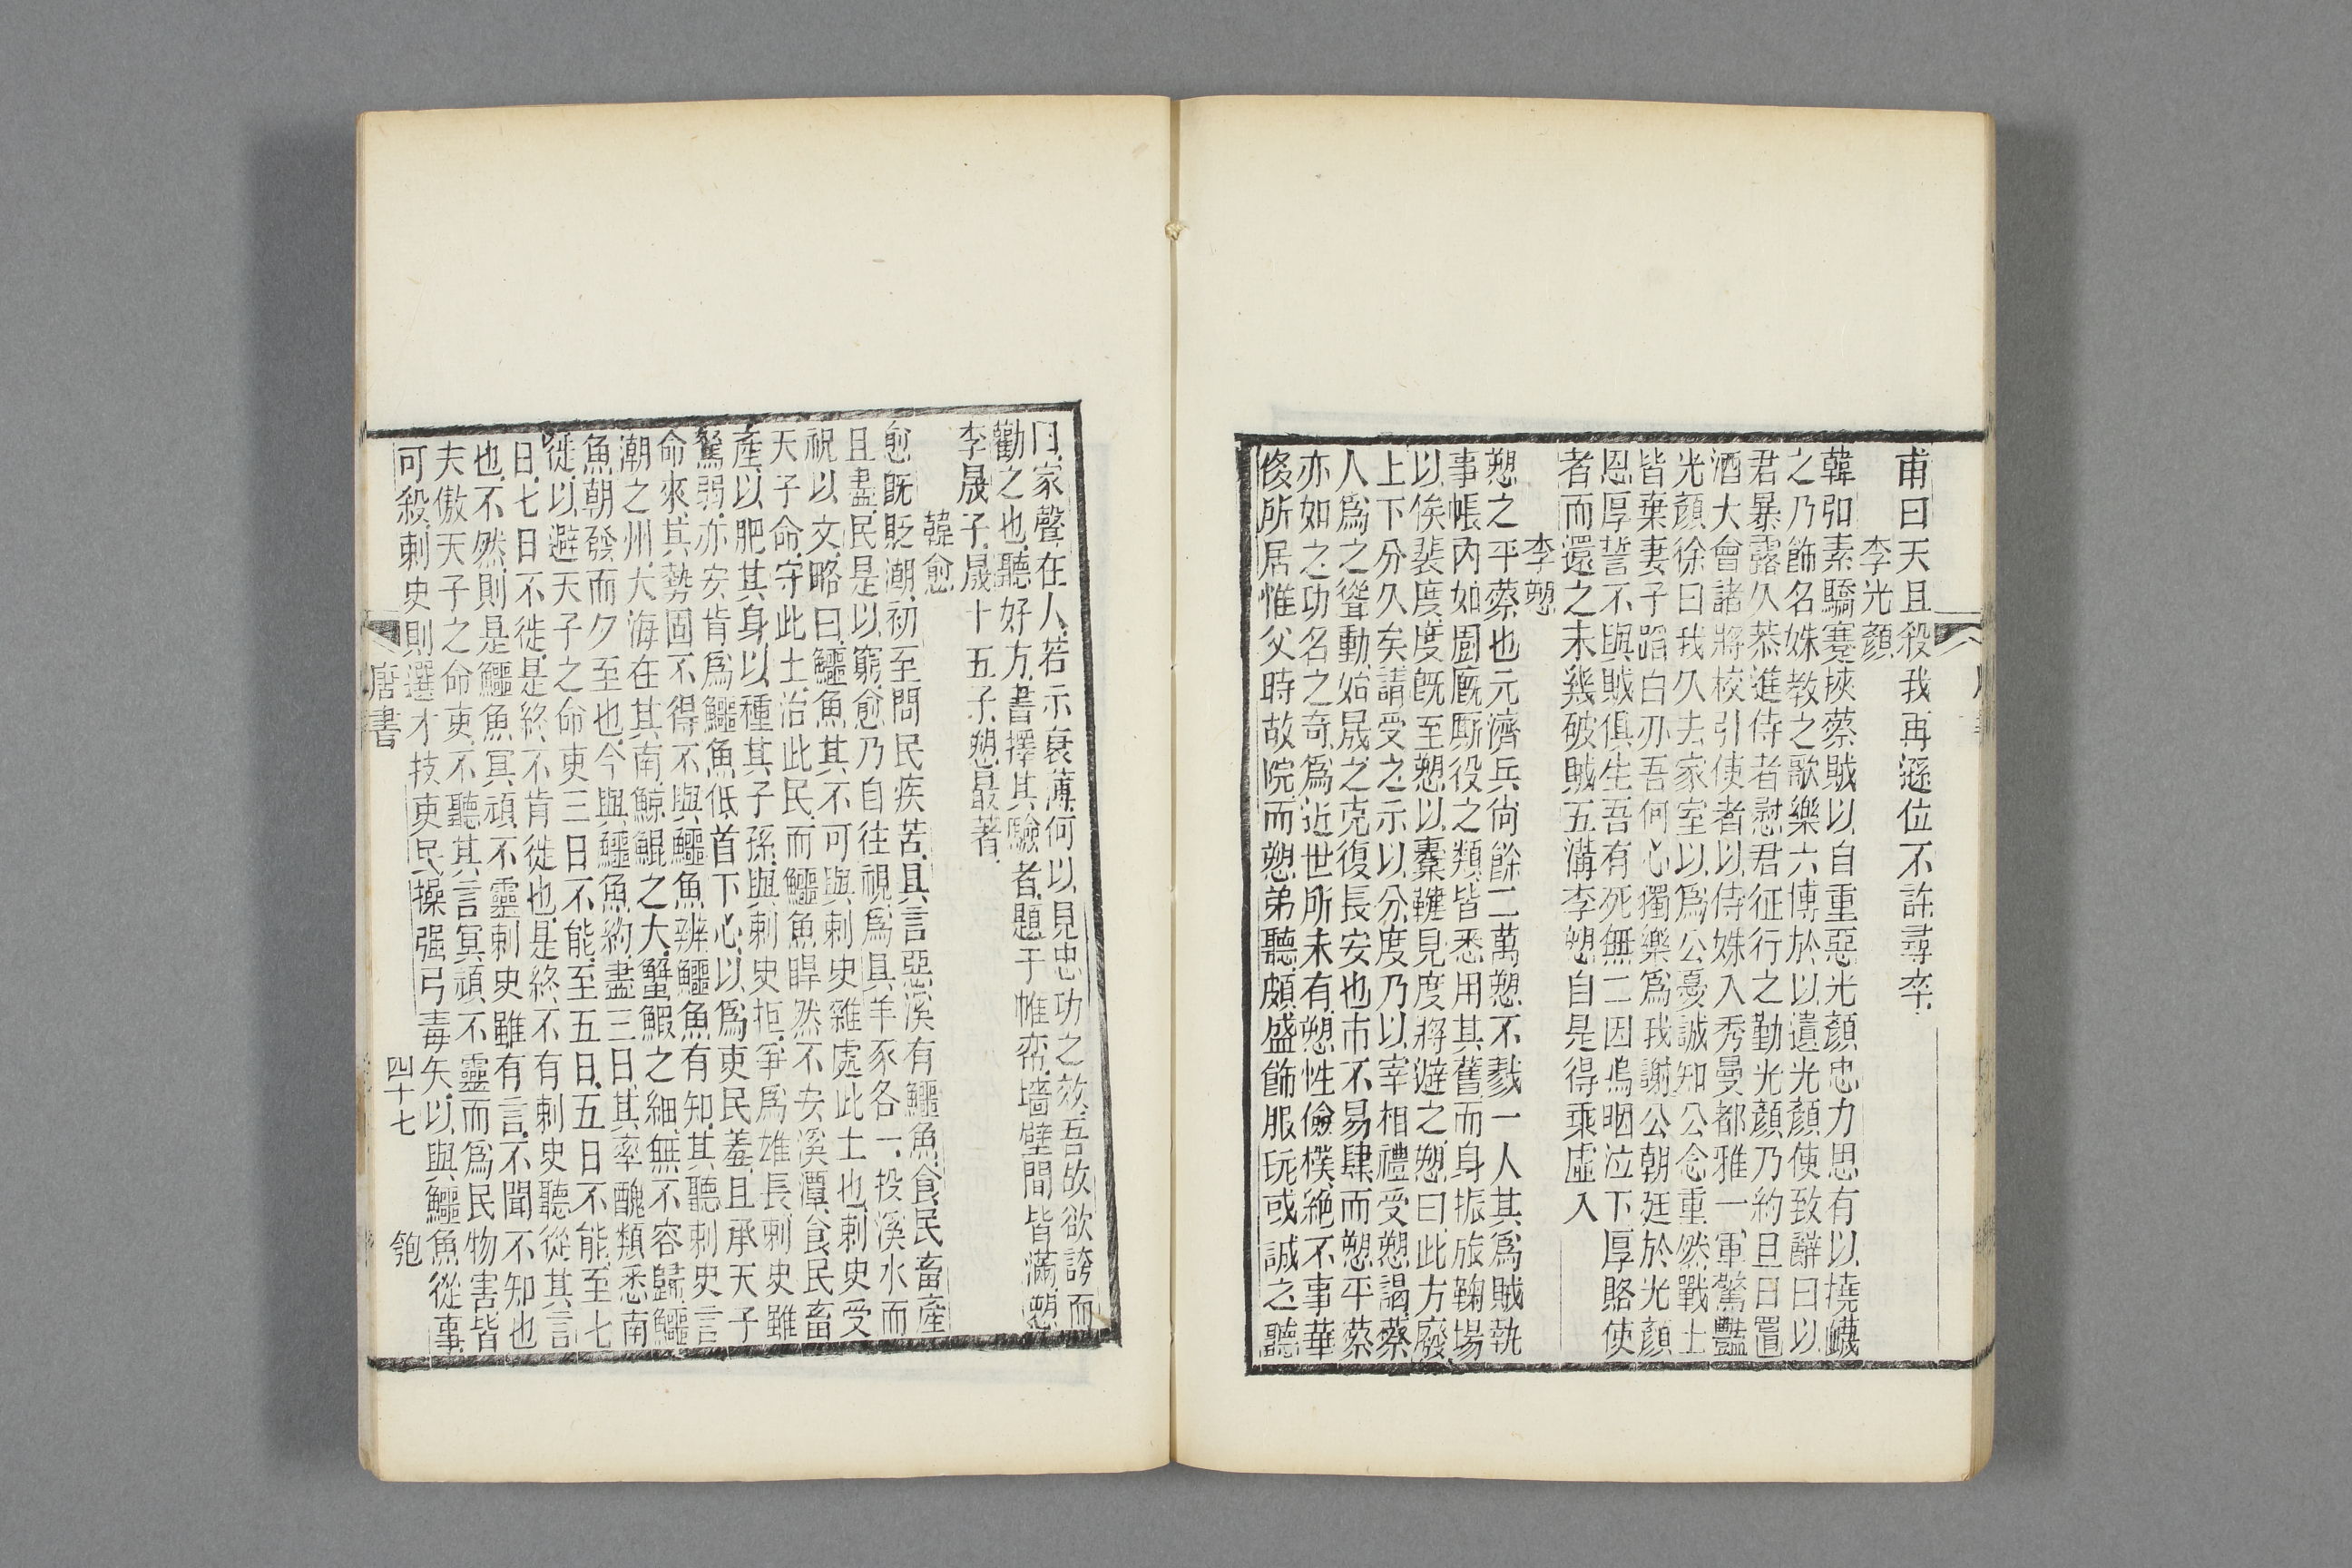 甫曰天且殺我再遜位不許尋卒
李光顏
韓弘素驕蹇挾蔡賊以自重惡光顏忠力思有以撓衊
之乃飾名姝教之歌樂六博於以遺光顏使致辭曰以
君暴露久恭進侍者慰君征行之勤光顏乃約旦日置
酒大會諸將校引使者以侍姝入秀曼都雅一軍驚豔
光顏徐曰我久去家室以爲公憂誠知公念重然戰士
皆棄妻子蹈白刃吾何心獨樂爲我謝公朝廷於光顏
恩厚誓不與賊俱生吾有死無二因嗚咽泣下厚賂使
者而還之未幾破賊五溝李愬自是得乘虛入
李愬
愬之平蔡也元濟兵尙餘二萬愬不戮一人其爲賊執
事帳內如廚廐廝役之類皆悉用其舊而身振旅鞠場
以俟裴度度旣至愬以櫜鞬見度將避之愬曰此方廢
上下分久矣請受之示以分度乃以宰相禮受愬謁蔡
人爲之聳動始晟之克復長安也市不易肆而愬平蔡
亦如之功名之奇爲近世所未有愬性儉樸絕不事華
侈所居惟父時故院而愬弟聽頗盛飾服玩或誡之聽
曰家聲在人若示衰薄何以見忠功之效吾故欲誇而
勸之也聽好方書擇其驗者題于帷帟墻壁間皆滿愬
李晟子晟十五子愬最著
韓愈
愈旣貶潮初至問民疾苦具言惡溪有鱷魚食民畜產
且盡民是以窮愈乃自往視爲具羊豕各一投溪水而
祝以文略曰鱷魚其不可與刺史雜處此土也刺史受
天子命守此土治此民而鱷魚睅然不安溪潭食民畜
產以肥其身以種其子孫與刺史拒爭爲雄長刺史雖
駑弱亦安肯爲鱷魚低首下心以爲吏民羞且承天子
命來其勢固不得不與鱷魚辨鱷魚有知其聽刺史言
潮之州大海在其南鯨鯤之大蟹鰕之細無不容歸鱷
魚朝發而夕至也今與鱷魚約盡三日其率醜類悉南
徙以避天子之命吏三日不能至五日五日不能至七
日七日不徙是終不肯徙也是終不有刺史聽從其言
也不然則是鱷魚冥頑不靈刺史雖有言不聞不知也
夫傲天子之命吏不聽其言冥頑不靈而爲民物害皆
可殺刺史則選才技吏民操强弓毒矢以與鱷魚從事
唐書
四十七